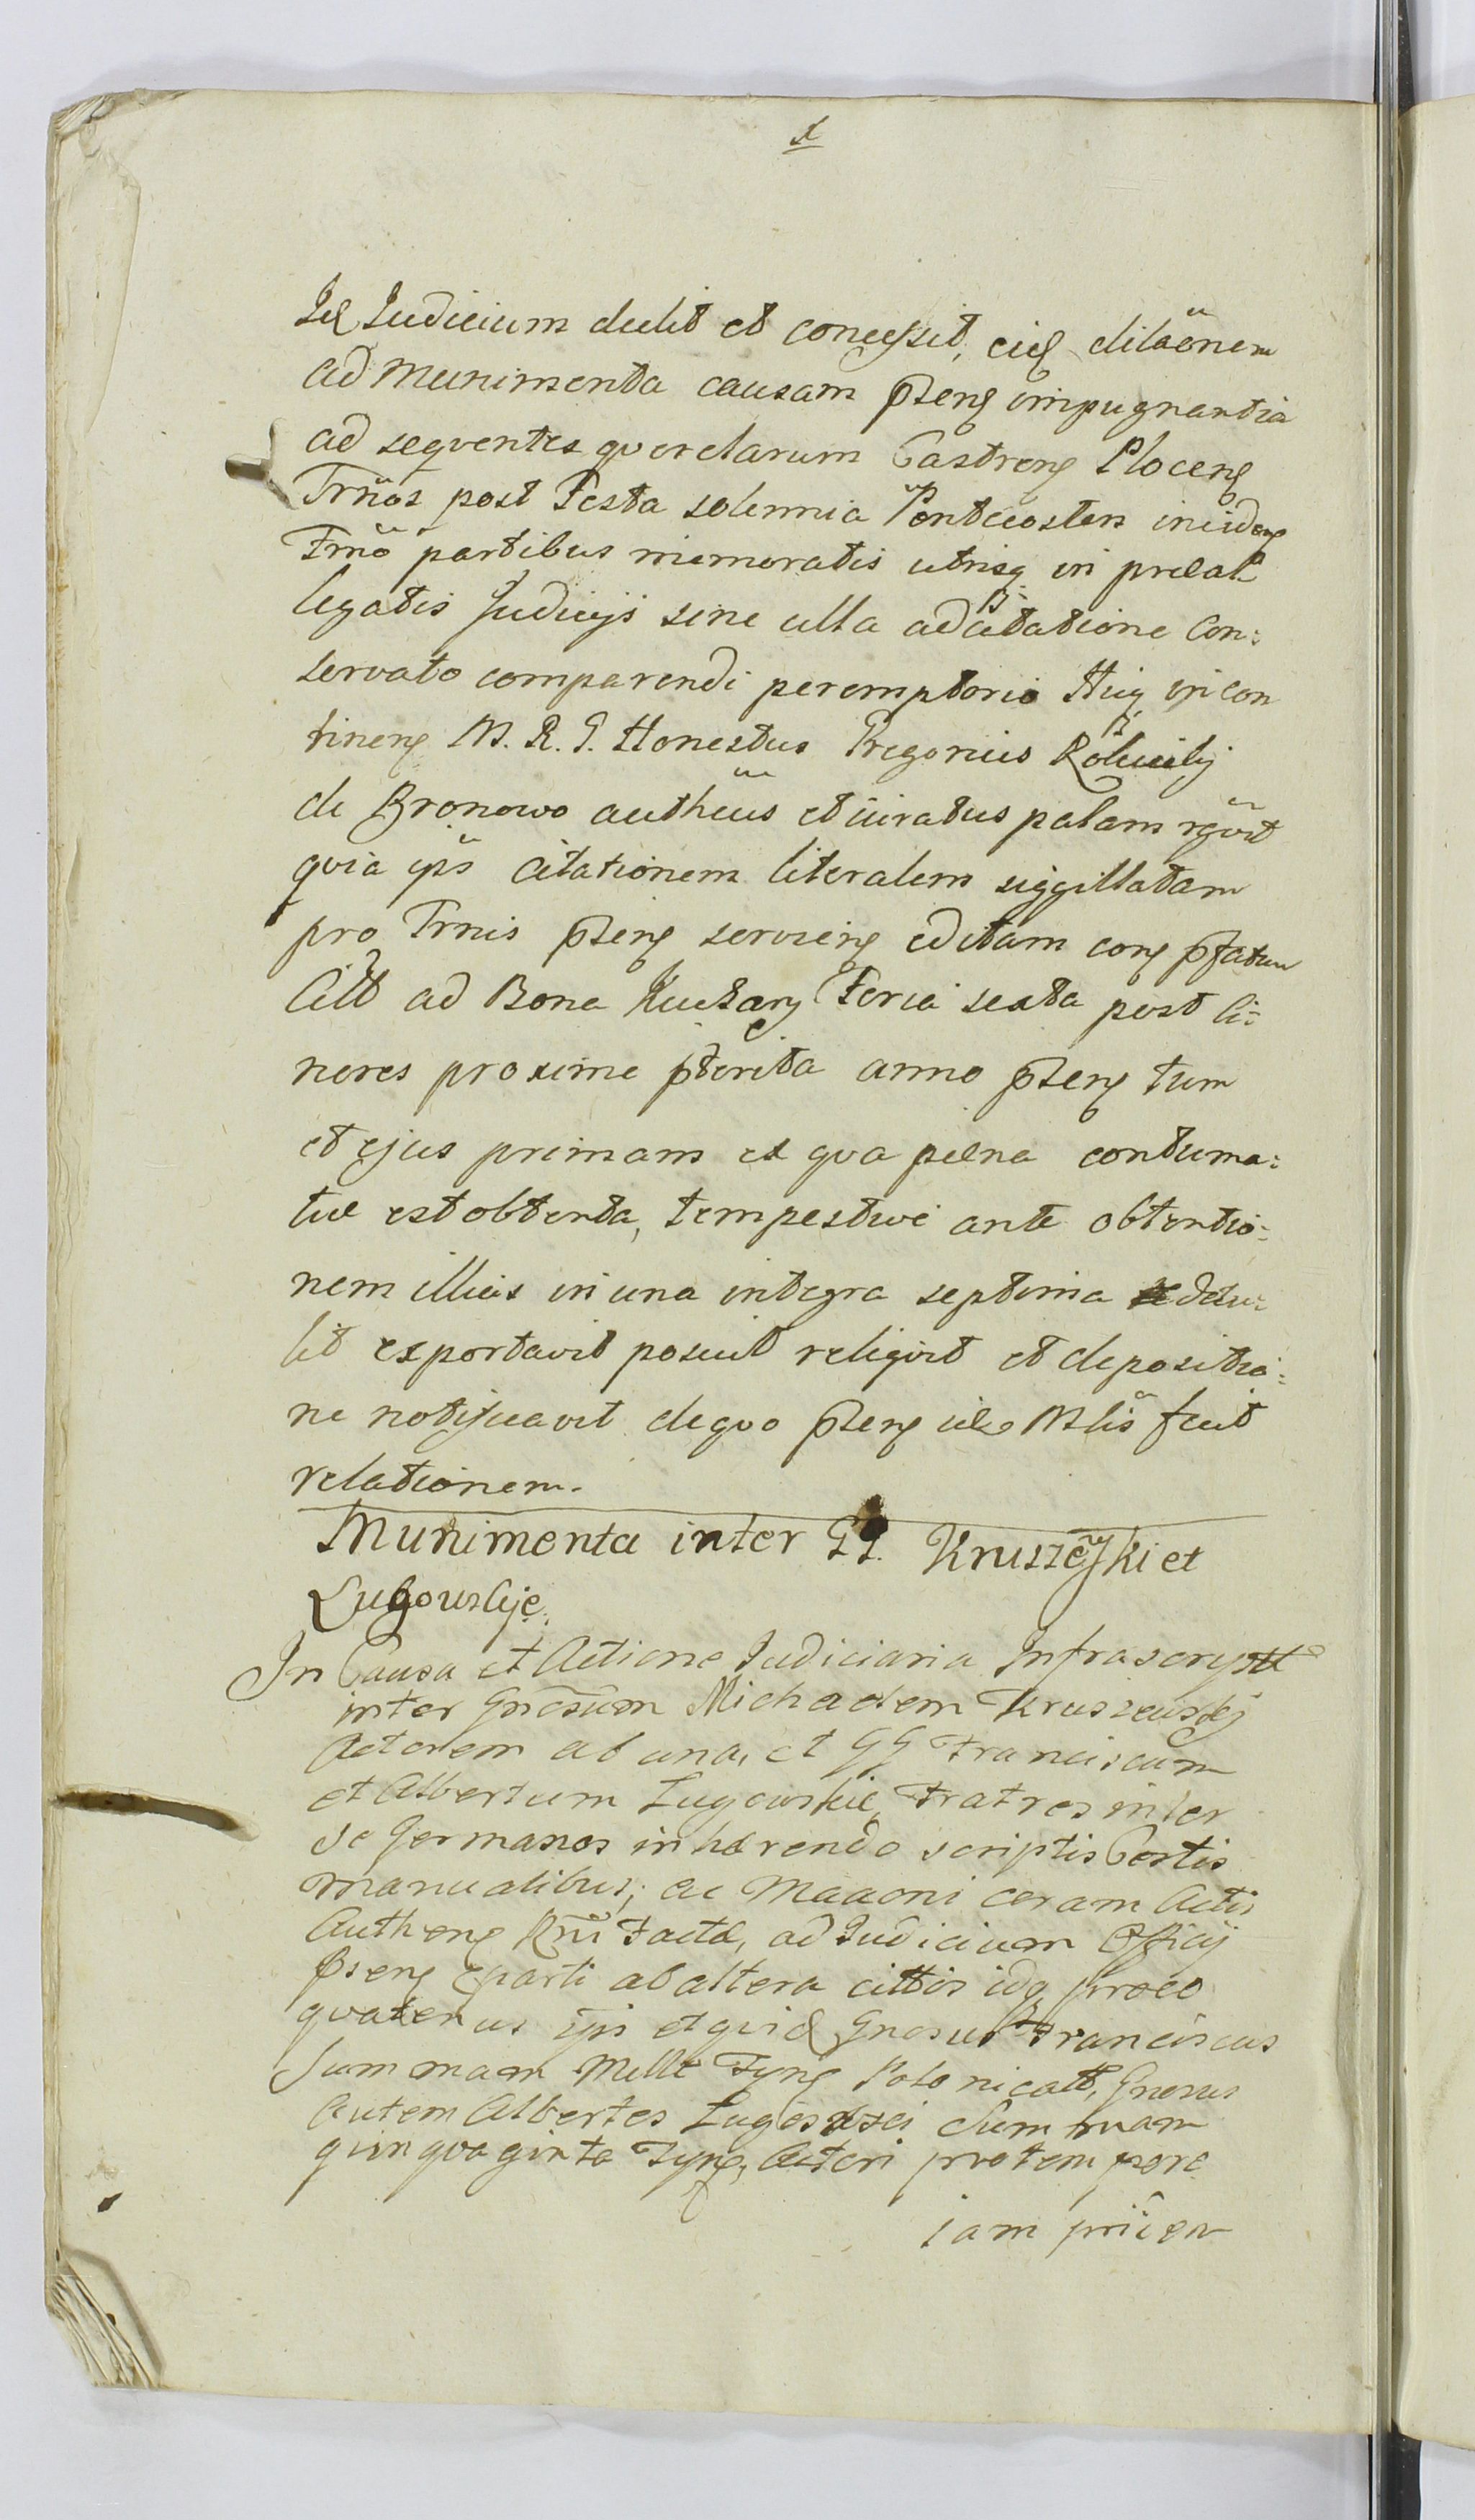 Judicium dedit et concessit, dilaonem
ad Munimenta causam pteng impugnantia
ad seqventes qverelarum Castreng Ploceng
Trnos post Festa solennia Pentecosten incideng
Trno partibus memoratis utrisq in prælat
legatis Judicijs sine ulla adcitatione con:
servato comparendi peremptorio Huiq in con
tineng M. R. G. Honestus Gregorius
de Bronowo autheus et iuratus palam rgvit
qvia ips citationem literalem siggillatam
pro Trnis pteng servieng editam cong pfatum
Citt ad Bona Kuchary Feria sexta post Ci:
neres proxime pterita anno pteng tum
et ejus primam ex qva pæna contuma:
tiæ est obtenta, tempestive ante obtentio:
nem illius in una integra septima
lit exportavit posuit reliqvit et depositio:
ne notificavit de qvo pteng Mlis fecit
relationem.
Munimenta inter GG. Kruszewski et
Lugowskije.
In Causa et Actione Judiciaria Infrascriptt
inter Gnosum Michaelem Kruszewskij
Actorem ab una, et GG Franciscum
et Albertum Lugowskie, Fratres inter
se Germanos inhærendo scriptis Certis
manualibus, ac coram Actis
Autheng Rni Factæ, ad Judicium Officij
pteng parti ab altera cittis idq proeo
qvatenus ipi et qvid Gnosus Franciscus
Summam Mille Fyng Polonicatt, Gnosus
Autem Albertes Summam
qvinqvaginta Fyng, Actori pro tempore
iam